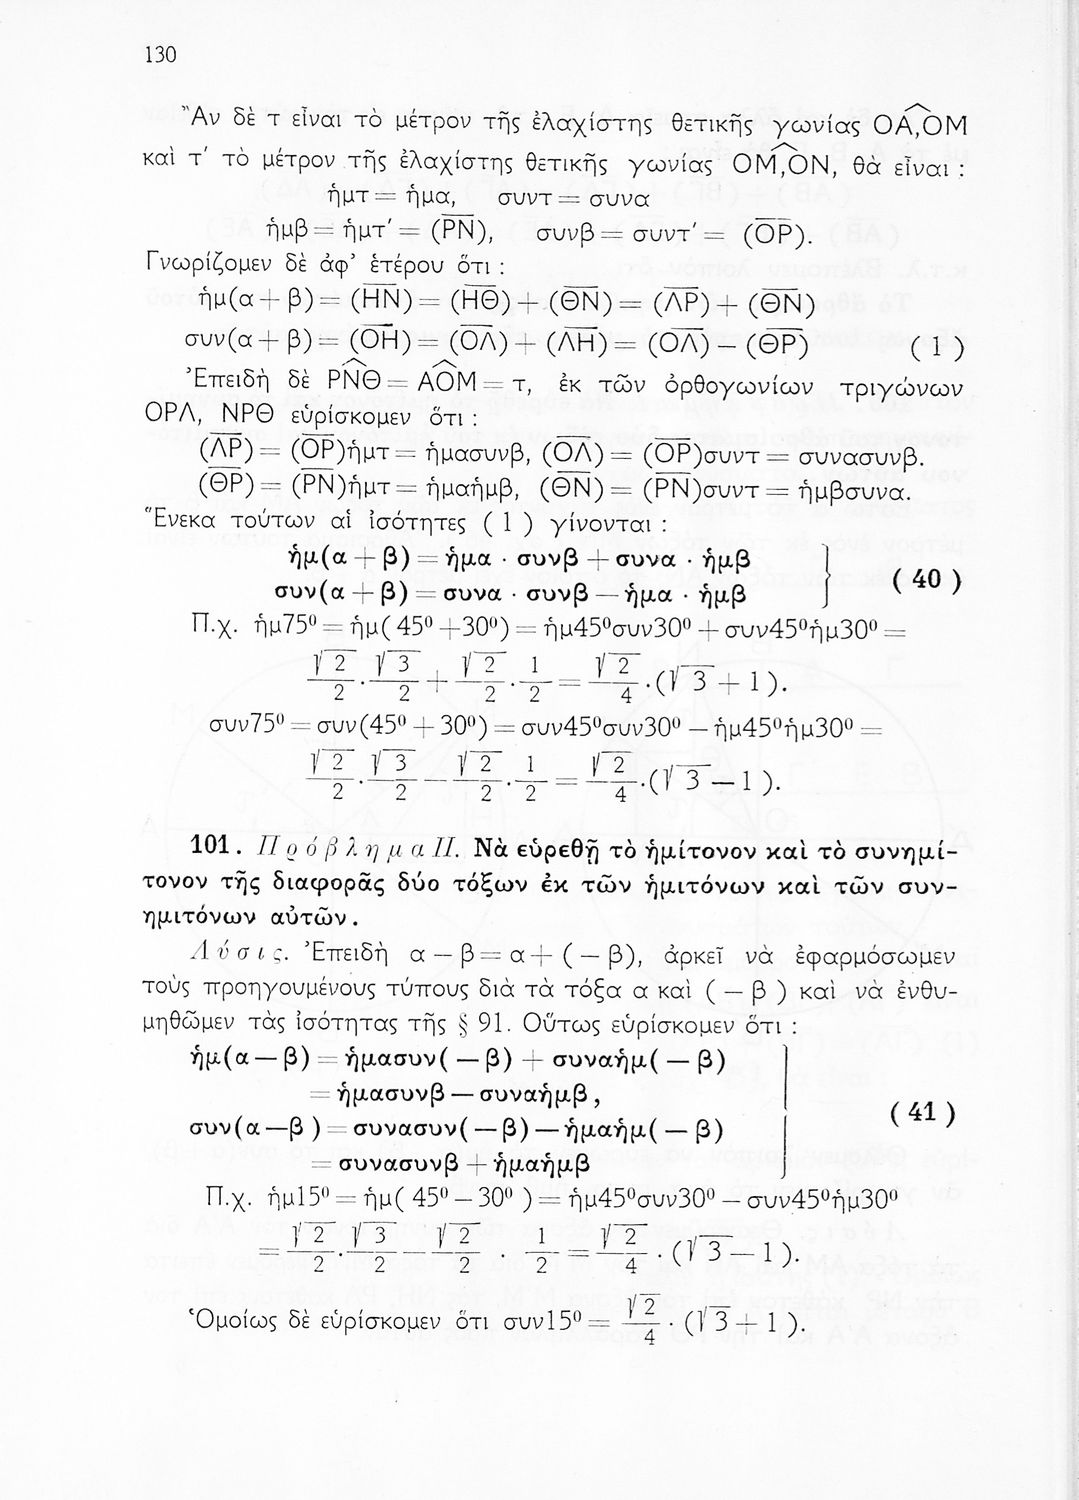 130
Ἂν δὲ τ εἶναι τὸ μέτρον τῆς ἐλαχίστης θετικῆς γωνίας ΟΑ,ΟΜ
καὶ τ′ τὸ μέτρον τῆς ἐλαχίστης θετικῆς γωνίας ΟΜ,ΟΝ, θὰ εἶναι :
ἡμτ = ἡμα, συντ = συνα
ἡμβ = ἡμτ′ = (ΡΝ), συνβ = συντ′ = (ΟΡ).
Γνωρίζομεν δὲ ἀφ' ἑτέρου ὅτι :
ἡμ(α + β) = (ΗΝ) = (ΗΘ) + (ΘΝ) = (ΛΡ) + (ΘΝ)
συν(α + β) = (ΟΗ) = (ΟΛ) + (ΛΗ) = (ΟΛ) – (ΘΡ) ( 1 )
Ἐπειδὴ δὲ ΡΝΘ = ΑΟΜ = τ, ἐκ τῶν ὀρθογωνίων τριγώνων
ΟΡΛ, ΝΡΘ εὑρίσκομεν ὅτι :
(ΛΡ) = (ΟΡ)ἡμτ = ἡμασυνβ, (ΟΛ) = (ΟΡ)συντ = συνασυνβ.
(ΘΡ) = (ΡΝ)ἡμτ = ἡμαἡμβ, (ΘΝ) = (ΡΝ)συντ = ἡμβσυνα.
Ἕνεκα τούτων αἱ ἰσότητες ( 1 ) γίνονται :
ἡμ(α + β) = ἡμα · συνβ + συνα · ἡμβ
συν(α + β) = συνα · συνβ — ἡμα · ἡμβ ( 40 )
Π.χ. ἡμ75⁰ = ἡμ( 45⁰ +30⁰) = ἡμ45⁰συν30⁰ + συν45⁰ἡμ30⁰ =
√2/2 · √3/2 + √2/2 · 1/2 = √2/4 · (√3 + 1 ).
συν75⁰ = συν(45⁰ + 30⁰) = συν45⁰συν30⁰ – ἡμ45⁰ἡμ30⁰ =
√2/2 · √3/2 — √2/2 · 1/2 = √2/4 · (√3 – 1 ).
101. Πρόβλημα ΙΙ. Νὰ εὑρεθῇ τὸ ἡμίτονον καὶ τὸ συνημί-
τονον τῆς διαφορᾶς δύο τόξων ἐκ τῶν ἡμιτόνων καὶ τῶν συν-
ημιτόνων αὐτῶν.
Λύσις. Ἐπειδὴ α – β = α + ( – β), ἀρκεῖ νὰ ἐφαρμόσωμεν
τοὺς προηγουμένους τύπους διὰ τὰ τόξα α καὶ ( – β ) καὶ νὰ ἐνθυ-
μηθῶμεν τὰς ἰσότητας τῆς § 91. Οὕτως εὑρίσκομεν ὅτι :
ἡμ(α — β) = ἡμασυν( — β) + συναἡμ( — β)
= ἡμασυνβ — συναἡμβ,
συν(α—β ) = συνασυν( — β) — ἡμαἡμ( — β) ( 41 )
= συνασυνβ + ἡμαἡμβ
Π.χ. ἡμ15⁰ = ἡμ( 45⁰ – 30⁰ ) = ἡμ45⁰συν30⁰ – συν45⁰ἡμ30⁰
= √2/2 · √3/2 — √2/2 · 1/2 = √2/4 · (√3 – 1 ).
Ὁμοίως δὲ εὑρίσκομεν ὅτι συν15⁰ = √2/4 · (√3 + 1 ).